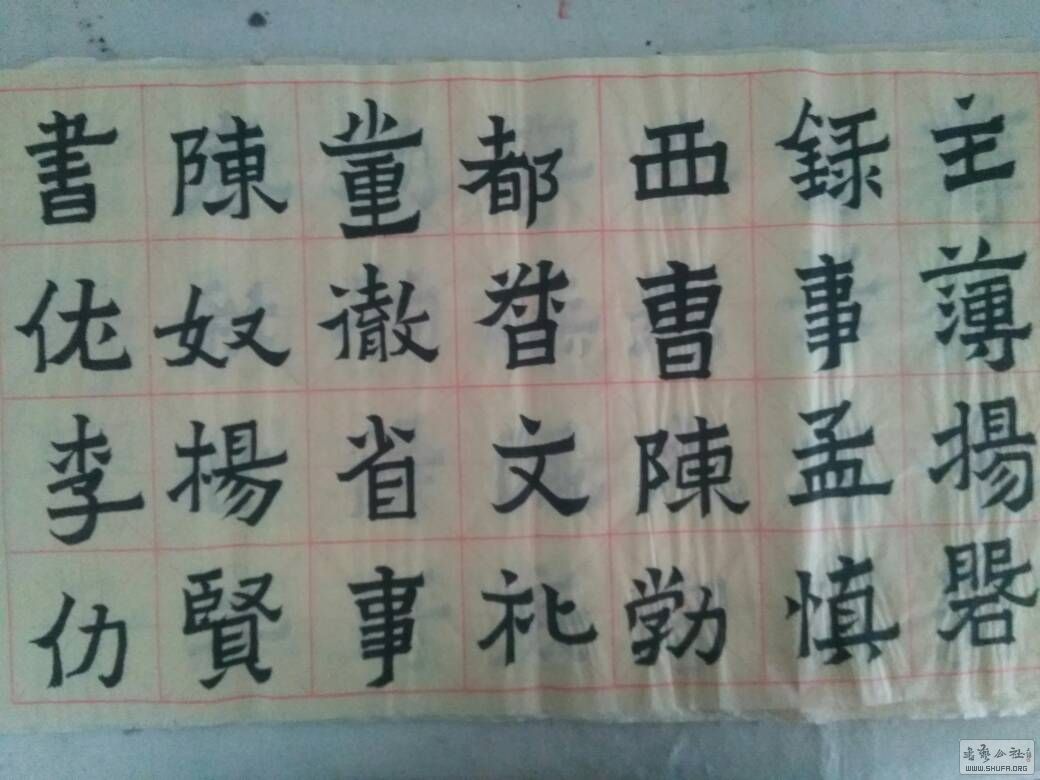 主薄揚
録事孟慎
西曹陳勃
都督文礼
董徹省事
陳奴楊賢
書佐李仂
书艺公社
WWW.SHUFA.ORG